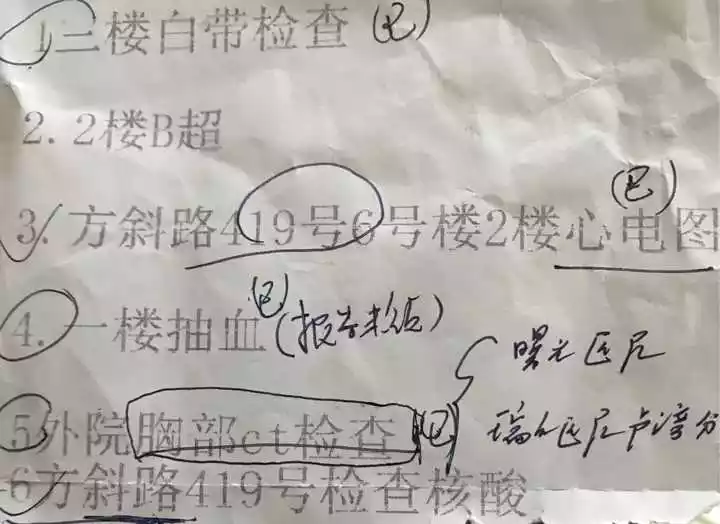 1三楼白带检查
2.2楼B超
3.方斜路419号6号楼2楼心电图
4.一楼抽血(报告未结)
5外院胸部ct检查
曙光医院
瑞金医院卢湾分
6方斜路419号检查核酸